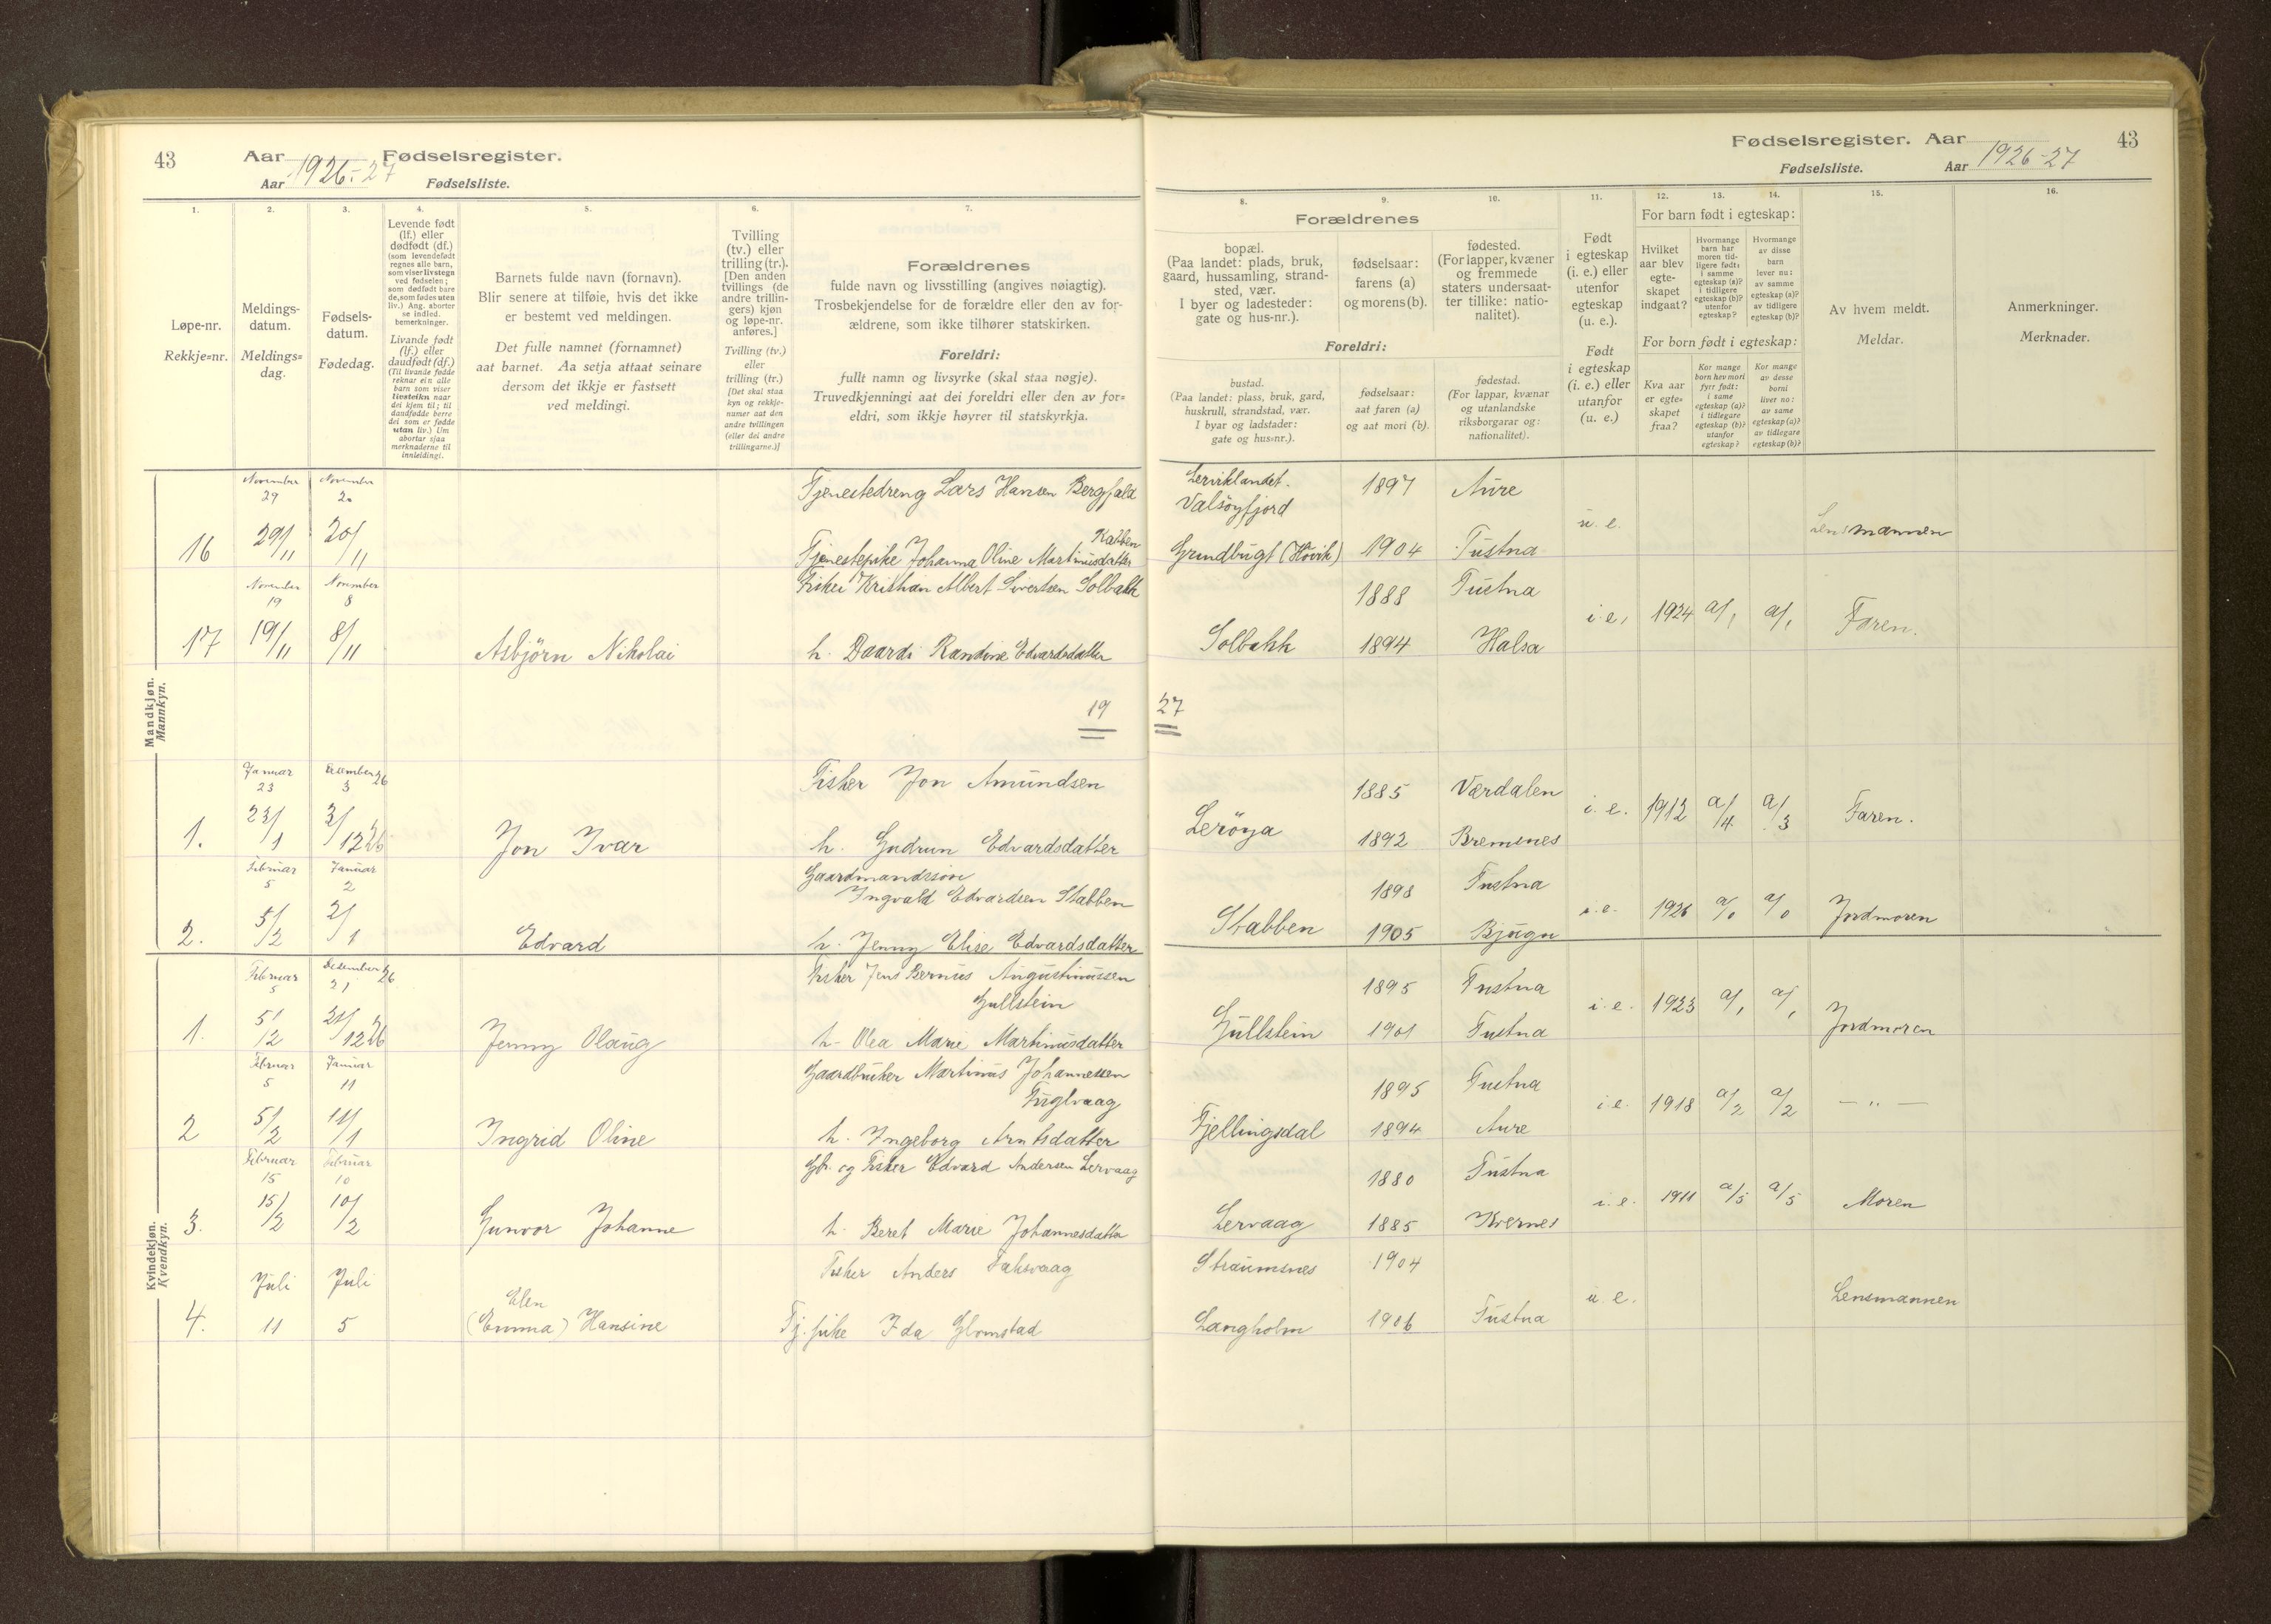 43
Aar 1926-27 Fødselsregister.
Aar Fødselsliste.
Fødselsregister. Aar 1926-27 43
Fødselsliste. Aar
1. 2. 3. 4. 5. 6. 7.
Løpe-nr.
Rekkje=nr.
Meldings-
datum.
Meldings=
dag.
Fødsels-
datum.
Fødedag.
Levende født
(lf.) eller
dødfødt (df.)
(som levendefødt
regnes alle barn,
som viser livstegn
ved fødselen;
som dødfødt bare
de, som fødes uten
liv.) Ang. aborter
se indled.
bemerkninger.
Livande født
(lf.) eller
daudfødt (df.)
(Til livande fødde
reknar ein alle
barn som viser
livsteikn naar
dei kjem til; til
daudfødde berre
dei som er fødde
utan liv.) Um
abortar sjaa
merknaderne til
innleidingi.
Barnets fulde navn (fornavn).
Blir senere at tilføie, hvis det ikke
er bestemt ved meldingen.
Det fulle namnet (fornamnet)
aat barnet. Aa setja attaat seinare
dersom det ikkje er fastsett
ved meldingi.
Tvilling
(tv.) eller
trilling (tr.).
[Den anden
tvillings (de
andre trillin-
gers) kjøn
og løpe-nr.
anføres.]
Tvilling (tv.)
eller
trilling (tr.)
[Det skal staa
kyn og rekkje-
numer aat den
andre tvillingen
(eller dei andre
trillingarne.)]
Forældrenes
fulde navn og livsstilling (angives nøiagtig).
Trosbekjendelse for de forældre eller den av for-
ældrene, som ikke tilhører statskirken.
Foreldri:
fullt namn og livsyrke (skal staa nøgje).
Truvedkjenningi aat dei foreldri eller den av for=
eldri, som ikkje høyrer til statskyrkja.
8. 9. 10. 11. 12. 13. 14. 15. 16.
Forældrenes
bopæl.
(Paa landet: plads, bruk,
gaard, hussamling, strand-
sted, vær.
I byer og ladesteder:
gate og hus-nr.).
fødselsaar:
farens (a)
og morens (b).
fødested.
(For lapper, kvæner
og fremmede
staters undersaat-
ter tillike: natio-
nalitet).
Foreldri:
bustad.
(Paa landet: plass, bruk, gard,
huskrull, strandstad, vær.
I byar og ladstader:
gate og hus=nr.).
fødselsaar:
aat faren (a)
og aat mori (b).
fødestad.
(For lappar, kvænar
og utanlandske
riksborgarar og:
nationalitet).
Født
i egteskap
(i. e.) eller
utenfor
egteskap
(u. e.).
Født
i egteskap
(i. e.) eller
utanfor
(u. e.)
For barn født i egteskap:
Hvilket
aar blev
egte-
skapet
indgaat?
Hvormange
barn har
moren tid-
ligere født:
i samme
egteskap (a)?
i tidligere
egteskap (b)?
utenfor
egteskap?
Hvormange
av disse
barn
lever nu:
av samme
egteskap (a)?
av tidligere
egteskap (b)?
For born født i egteskap:
Kva aar
er egte=
skapet
fraa?
Kor mange
born hev mori
fyrr født:
i same
egteskap (a)?
i tidlegare
egteskap (b)?
utanfor
egteskap?
Kor mange
av desse
borni
liver no:
av same
egteskap (a)?
av tidlegare
egteskap (b)?
Av hvem meldt.
Meldar.
Anmerkninger.
Merknader.
Mandkjøn.
Mannkyn.
November 29 November 20 Tjenestedreng Lars Hansen Bergfald Valsöyfjord 1897 Aure
16 29/11 20/11 Tjenestepike Johanna Oline Martinusdatter Grundbugt (Hövik) 1904 Tustna u. e. Lensmannen
November 19 November 8 Fisker Kristian Albert Sivertsen Solbakk 1888 Tustna
17 19/11 8/11 Asbjörn Nikolai h. Baardi Randine Edvardsdatter Solbakk 1894 Halsa i. e. 1924 a/1 a/1 Faren.
19 27
Januar 23 December 26 3 Fisker Jon Amundsen 1885 Værdalen
1. 23/1 3/12 26 Jon Ivar h. Gudrun Edvardsdatter Leröya 1892 Bremsnes i. e. 1912 a/4 a/3 Faren.
Februar 5 Januar 2 Gaardmandssön
Ingvald Edvardsen Stabben 1898 Tustna
2. 5/2 2/1 Edvard h. Jenny Elise Edvardsdatter Stabben 1905 Bjugn i. e. 1926 a/0 a/0 Jordmoren
Kvindekjøn.
Kvendkyn.
Februar 5 Desember 26 21 Fisker Jens Bernus Augustinussen
Gullstein 1895 Tustna
1. 5/2 21/12 26 Jenny Olaug h. Olea Marie Martinusdatter Gullstein 1901 Tustna i. e. 1923 a/1 a/1 Jordmoren
Februar 5 Januar 11 Gaardbruker Martinus Johannessen
Fuglvaag 1895 Tustna
2 5/2 11/1 Ingrid Oline h. Ingeborg Arntsdatter Fjellingsdal 1894 Aure i. e. 1918 a/2 a/2 — " —
Februar 15 Februar 10 Gbr. og Fisker Edvard Andersen Lervaag 1880 Tustna
3. 15/2 10/2 Gunvor Johanne h. Beret Marie Johannesdatter Lervaag 1885 Kvernes i. e. 1911 a/5 a/5 Moren
Juli Juli Fisker Anders Straumsnes 1904
Elen
4. 11 5 (Emma) Hansine Tj. pike Ida Glomstad Langholm 1906 Tustna u. e. Lensmannen